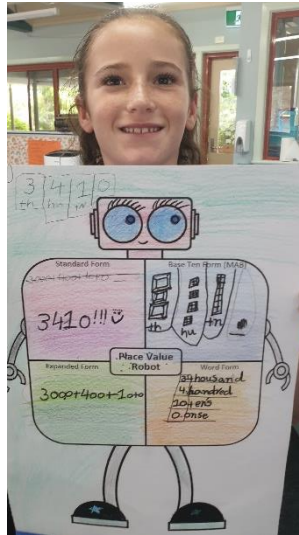 3 4 1 0
th hu tn
Standard Form
3000+400+10+0
3410!!!
Base Ten Form (MAB)
th hu tn
Place Value
Robot
Expanded Form
3000+400+10+0
Word Form
3 thousand
4 handred
10 tens
0 onse